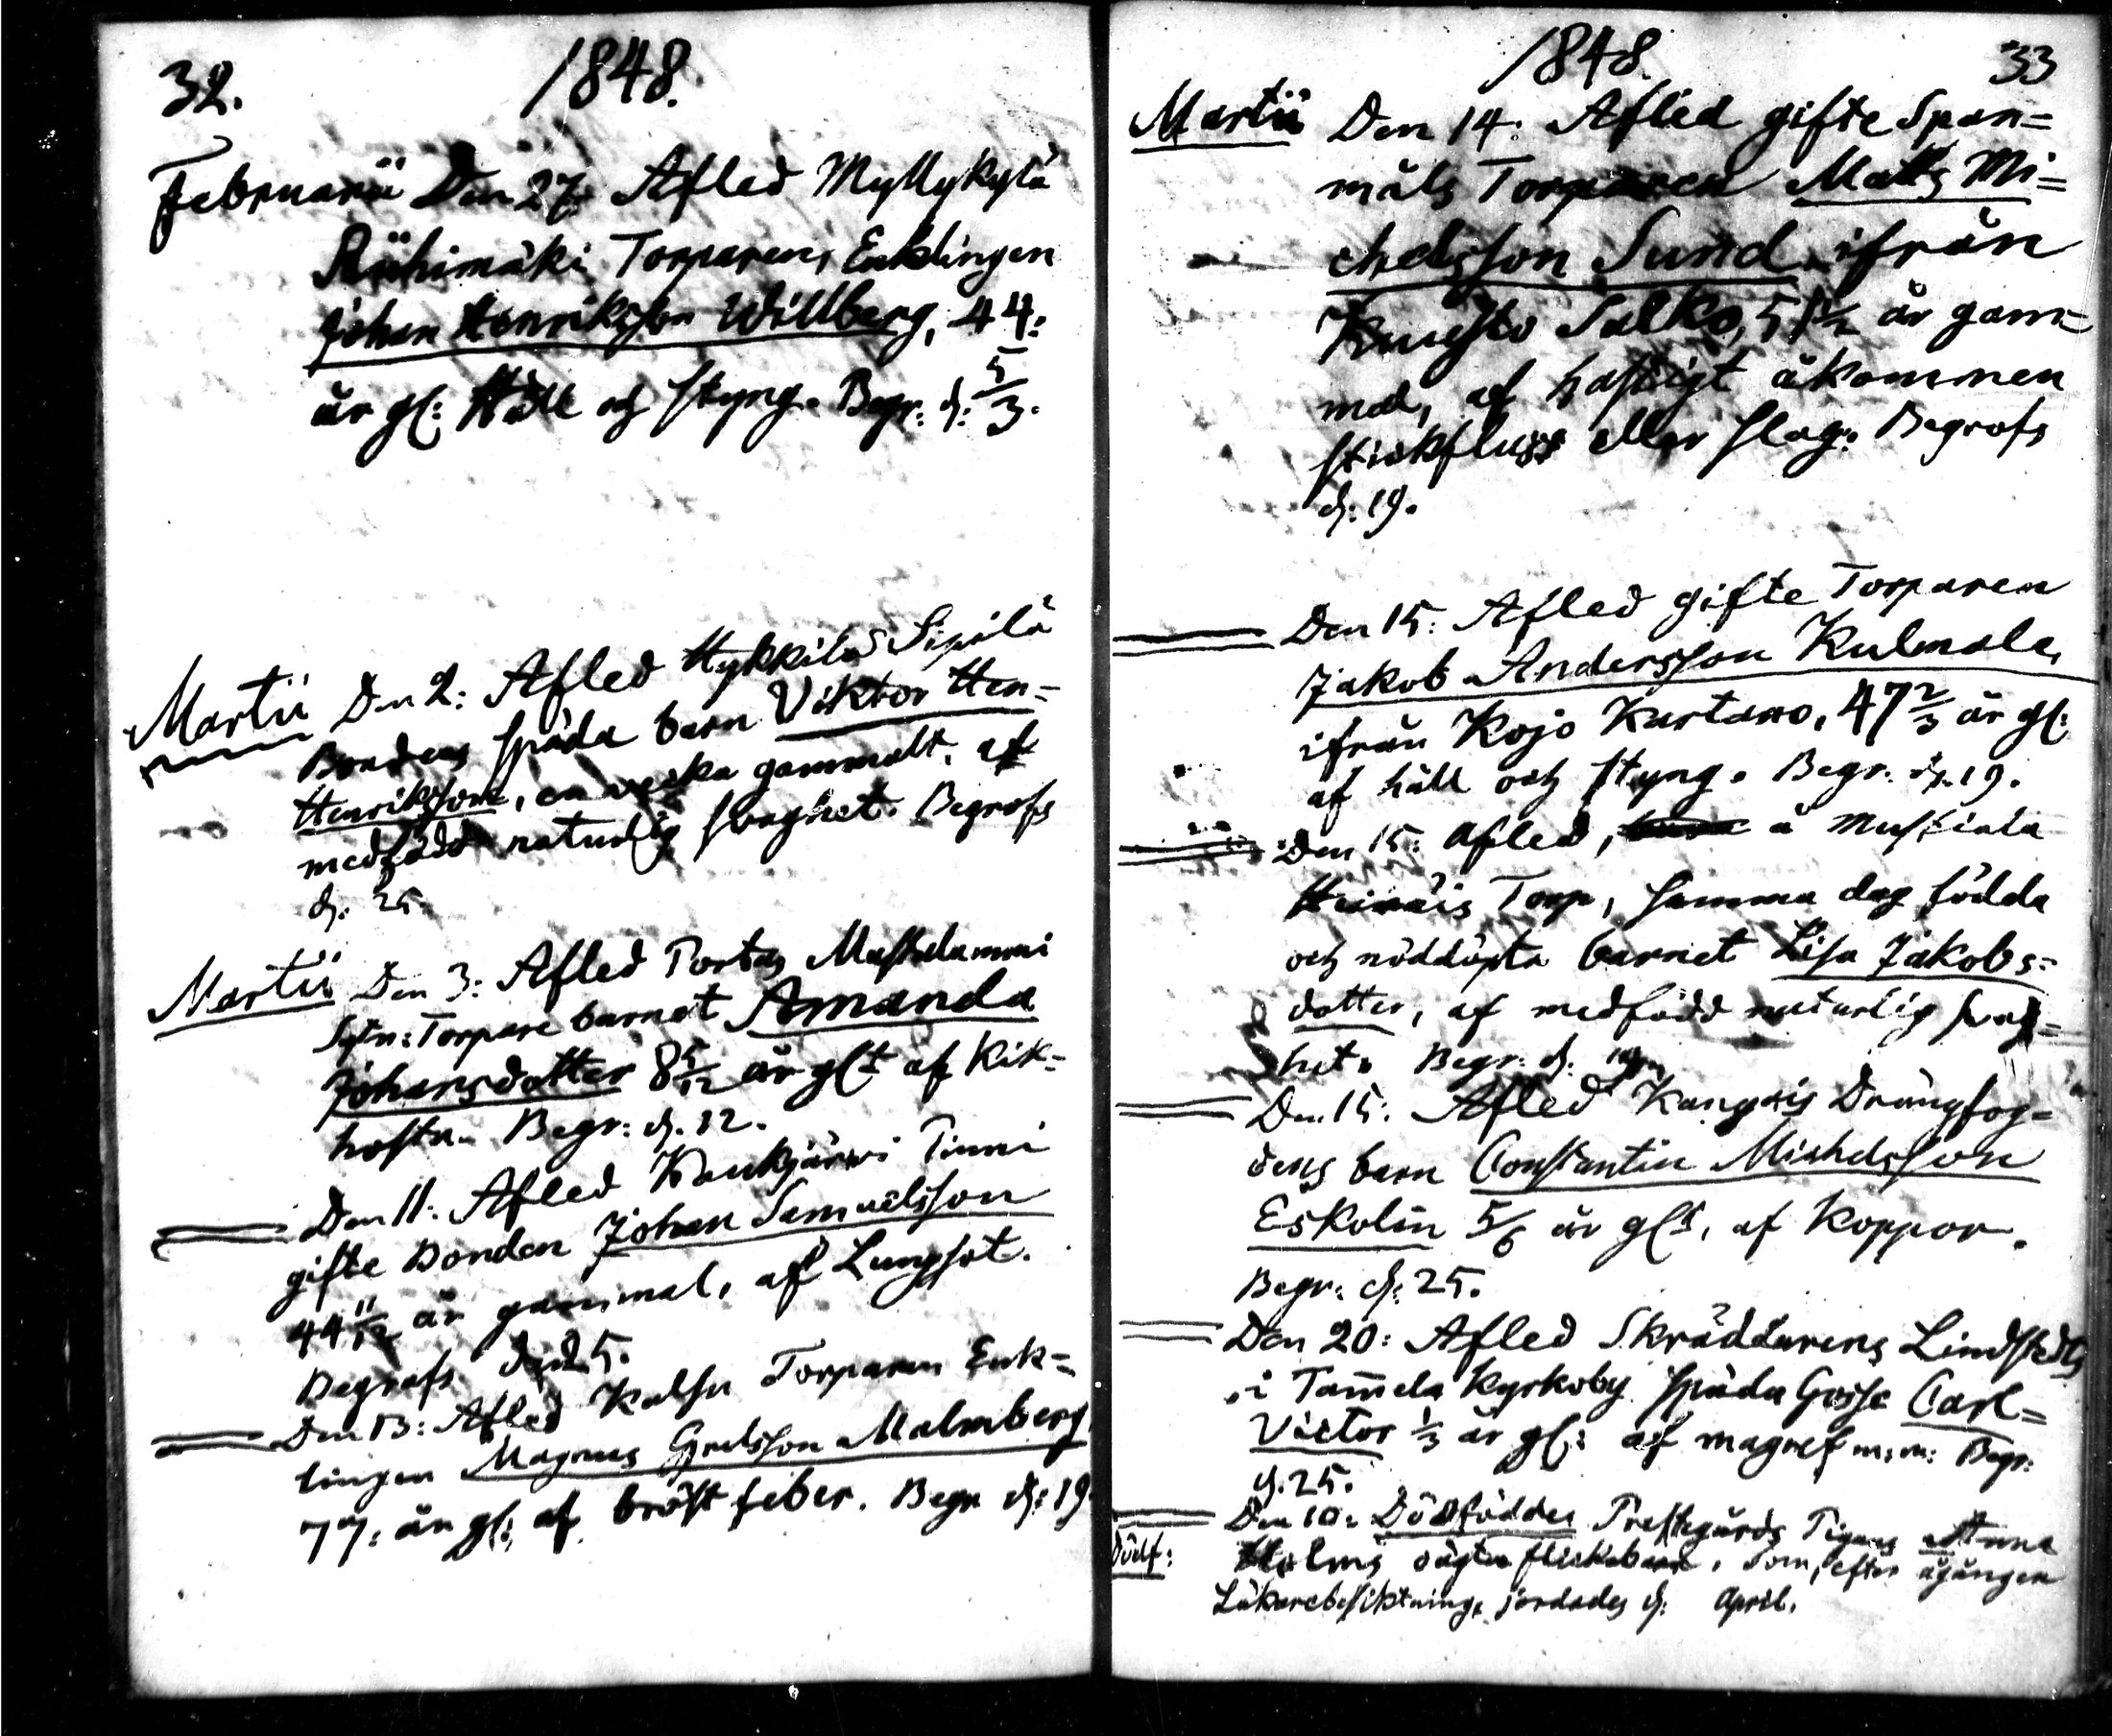 32. 1848.
Februarii Den 27. Afled Myllykylä
Riihimäki Torparen, Enklingen
Johan Henriksson Willberg, 44:
år gl: Håll och styng. Begr: d: 5/3.
Martii Den 2: Afled Hykkilä Sipilä
Bondens späda barn Viktor Hen-
Henriksson, en vecka gammalt, af
medfödd naturlig svaghet. Begrofs
d: 25.
Martii Den 3: Afled Portas Mustalammi
Sytn: Torpare barnet Amanda
Johansdotter 8 5/12 år glt af Kik-
hosta. Begr: d. 12.
Den 11: Afled Kaukjärwi Pinni
gifte Bonden Johan Samuelsson
44 11/12 år gammal, af Lungsot.
Begrofs den 25.
Den 13: Afled Kalsu Torparen Enk-
lingen Magnus Gretsson Malmberg
77: år gl: af bröst feber. Begr d: 19.
1848. 33
Martii Den 14: Afled gifte Span-
måls Torparen Matts Mi-
chelsson Sund, ifrån
Kuusto Salko, 51 1/2 år gam-
mal, af hastigt åkommen
stickfluss eller slag. Begrofs
d: 19.
Den 15: Afled gifte Torparen
Jakob Andersson Kulmala,
ifrån Kojo Kartano, 47 2/3 år gl:
af håll och styng. Begr. d. 19.
Den 15: Afled, å Mustiala
Torp, samma dag födda
och nöddöpta barnet Lisa Jakobs-
dotter, af medfödd naturlig svag-
het. Begr: d. 19.
Den 15: Afled Kangais Drängfog-
dens barn Constantin Michelsson
Eskolin 5/6 år glt, af Koppor.
Begr: d: 25.
Den 20: Afled Skräddarens Lindstedts
i Tam̄ela Kyrkoby späda Gosse Carl-
Victor 1/3 år gl: af magref m: m: Begr:
d. 25.
Den 10: Dödföddes Prestegårds Pigans Anna
Dödf: Holms oägta flickebarn, som, efter ågången
Läkarebesiktning, jordades d: April.